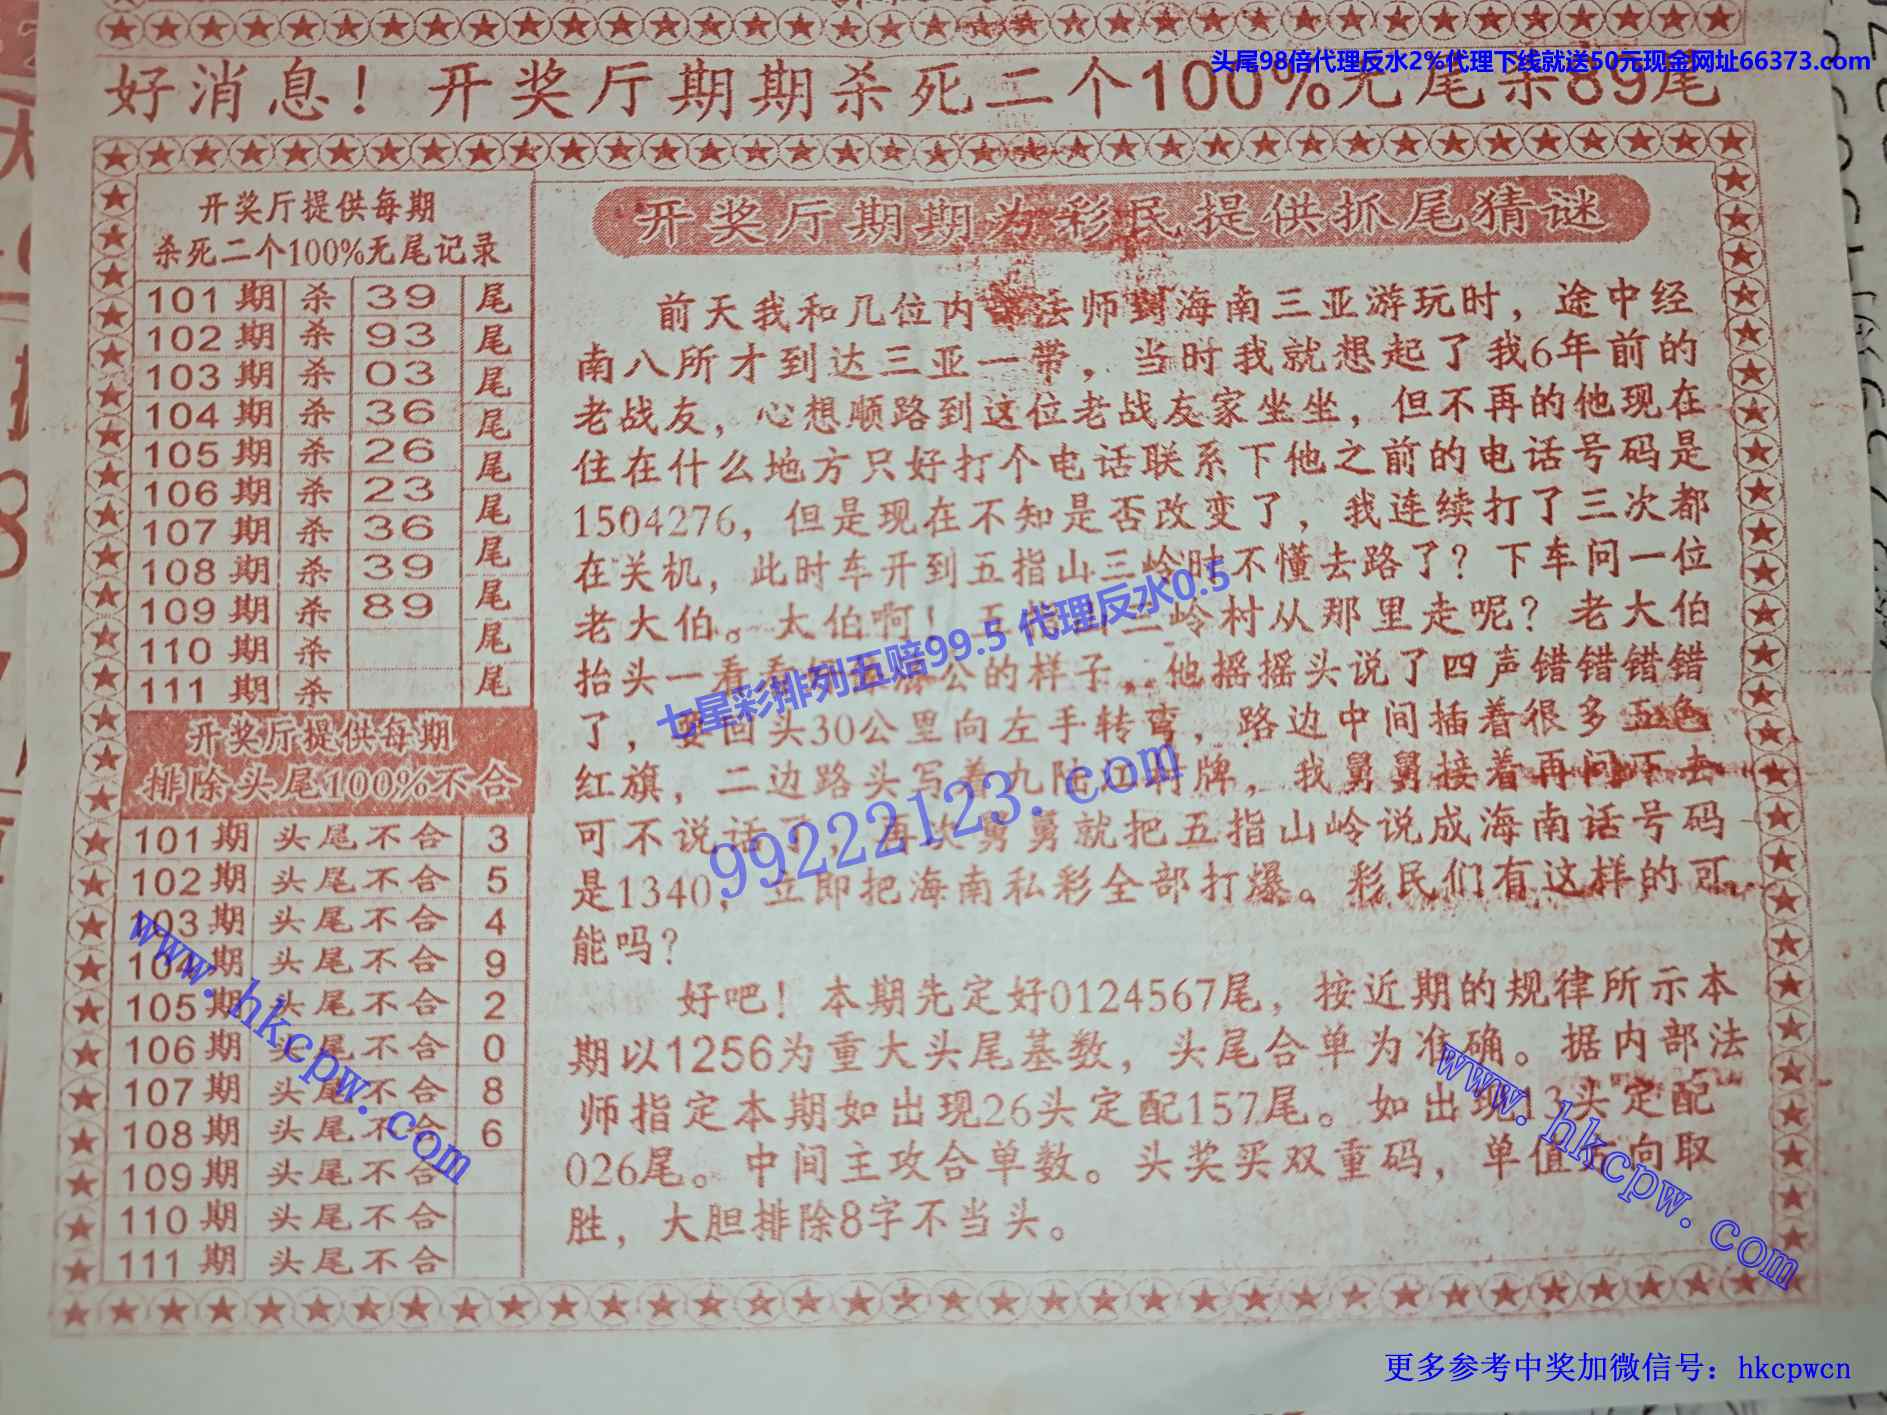 头尾98倍代理反水2%代理下线就送50元现金网址66373.com
好消息！开奖厅期期杀死二个100%无尾杀89尾
开奖厅提供每期
杀死二个100%无尾记录
101期 杀 39 尾
102期 杀 93 尾
103期 杀 03 尾
104期 杀 36 尾
105期 杀 26 尾
106期 杀 23 尾
107期 杀 36 尾
108期 杀 39 尾
109期 杀 89 尾
110期 杀 尾
111期 杀 尾
开奖厅提供每期
排除头尾100%不合
101期 头尾不合 3
102期 头尾不合 5
103期 头尾不合 4
104期 头尾不合 9
105期 头尾不合 2
106期 头尾不合 0
107期 头尾不合 8
108期 头尾不合 6
109期 头尾不合
110期 头尾不合
111期 头尾不合
开奖厅期期为彩民提供抓尾猜谜
前天我和几位内部法师到海南三亚游玩时，途中经
南八所才到达三亚一带，当时我就想起了我6年前的
老战友，心想顺路到这位老战友家坐坐，但不再的他现在
住在什么地方只好打个电话联系下他之前的电话号码是
1504276，但是现在不知是否改变了，我连续打了三次都
在关机，此时车开到五指山三岭时不懂去路了？下车问一位
老大伯。太伯啊！五指山三岭村从那里走呢？老大伯
抬头一看看 公的样子，他摇摇头说了四声错错错错
了，要回头30公里向左手转弯，路边中间插着很多五色
红旗，二边路头写着九 村牌，我舅舅接着再问下去
可不说话了，再次舅舅就把五指山岭说成海南话号码
是1340，立即把海南私彩全部打爆。彩民们有这样的可
能吗？
好吧！本期先定好0124567尾，按近期的规律所示本
期以1256为重大头尾基数，头尾合单为准确。据内部法
师指定本期如出现26头定配157尾。如出现13头定配
026尾。中间主攻合单数。头奖买双重码，单值 向取
胜，大胆排除8字不当头。
七星彩排列五赔99.5 代理反水0.5
99222123.com
www.hkcpw.com
www.hkcpw.com
更多参考中奖加微信号：hkcpwcn